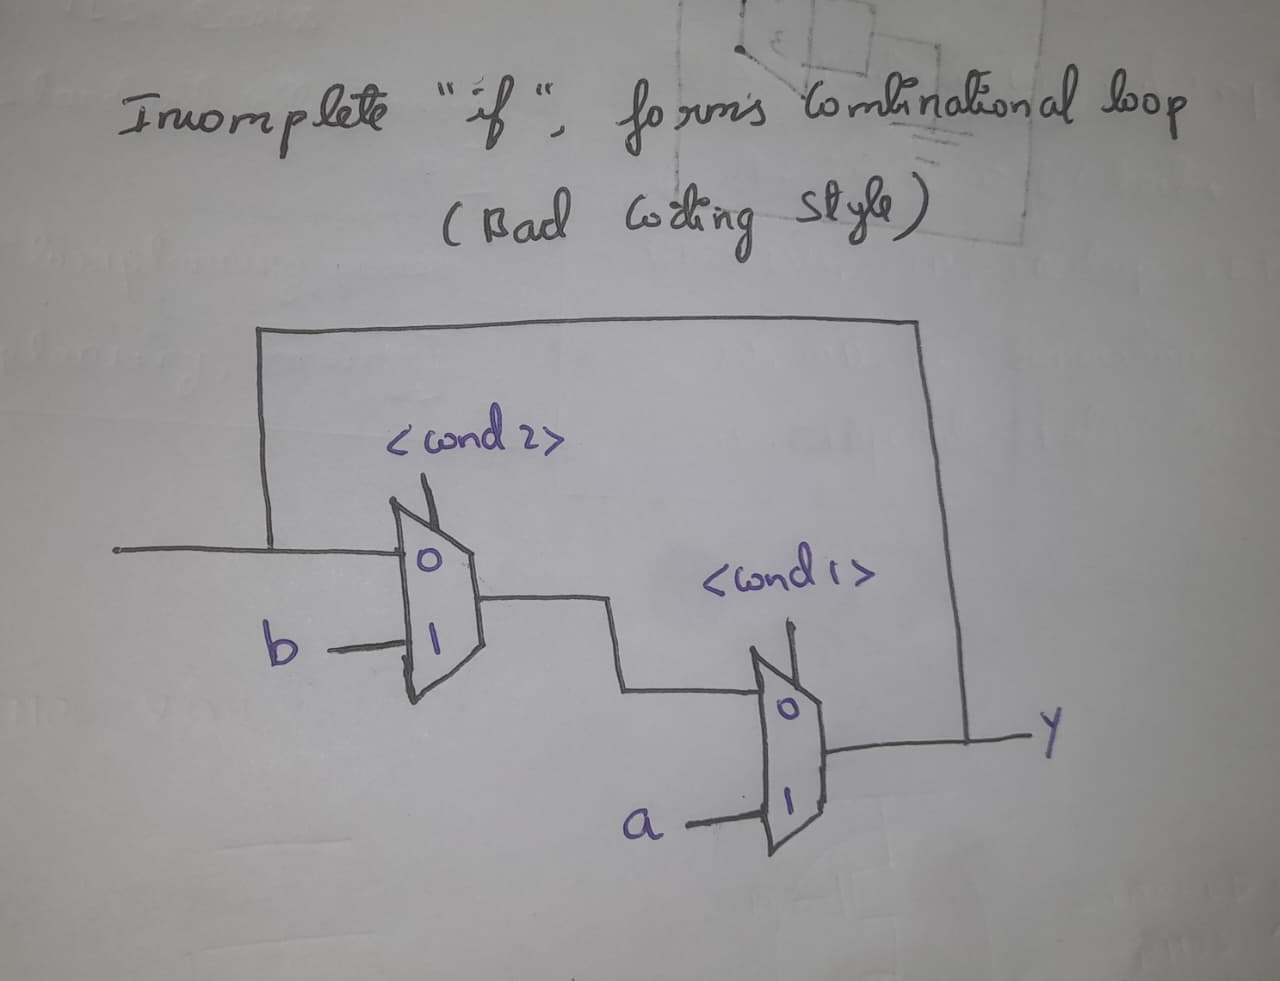 Incomplete "if", forms Combinational loop
(Bad Coding style)
<cond 2>
0
b
1
<cond 1>
0
Y
1
a